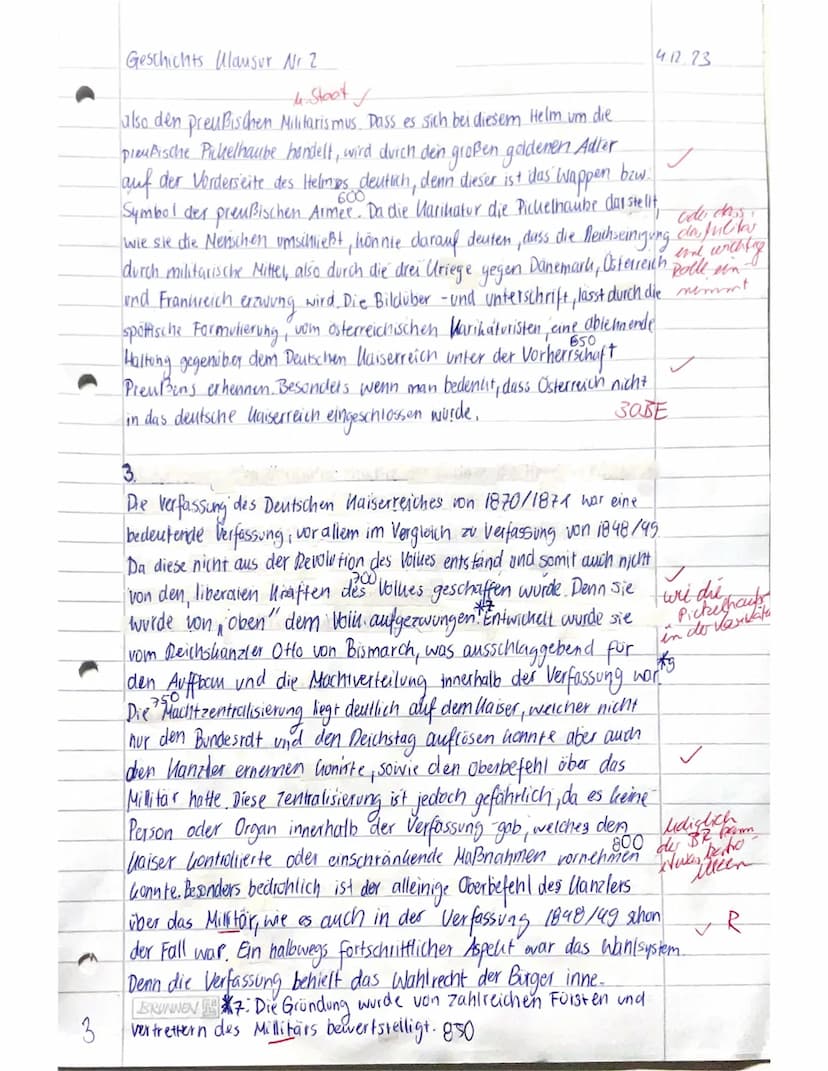 Geschichts Klausur Nr 2 4.12.23
u. Staat ✓
also den preußischen Militarismus. Dass es sich bei diesem Helm um die
preußische Pickelhaube handelt, wird durch den großen goldenen Adler
auf der Vorderseite des Helmes deutlich, denn dieser ist das Wappen bzw.
600
Symbol der preußischen Armee. Da die Karikatur die Pickelhaube darstellt,
wie sie die Menschen umschließt, könnte darauf deuten, dass die Reichseinigung
durch militärische Mittel, also durch die drei Kriege gegen Dänemark, Österreich
und Frankreich erzwung wird. Die Bildüber -und unterschrift, lässt durch die
oder dass
das Militär
eine wichtige
Rolle ein-
nimmt
spöttische Formulierung, vom österreichischen Karikaturisten, eine ablehnende
650
Haltung gegenüber dem Deutschen Kaiserreich unter der Vorherrschaft
Preußens erkennen. Besonders wenn man bedenkt, dass Österreich nicht
in das deutsche Kaiserreich eingeschlossen wurde.
30BE
3.
Die Verfassung des Deutschen Kaiserreiches von 1870/1871 war eine
bedeutende Verfassung, vor allem im Vergleich zu Verfassung von 1848/49.
Da diese nicht aus der Revolution des Volkes entstand und somit auch nicht
700
von den, liberalen Kräften des Volkes geschaffen wurde. Denn sie
wurde von „oben" dem Volk aufgezwungen.*7 Entwickelt wurde sie
wie die
Pickelhaube
in der Karikatur
vom Reichskanzler Otto von Bismarck, was ausschlaggebend für
den Auffbau und die Machtverteilung innerhalb der Verfassung war.
750
Die Machtzentralisierung liegt deutlich auf dem Kaiser, welcher nicht
nur den Bundesrat und den Reichstag auflösen konnte aber auch
den Kanzler ernennen konnte, sowie den Oberbefehl über das
Militär hatte. Diese Zentralisierung ist jedoch gefährlich, da es keine
Person oder Organ innerhalb der Verfassung gab, welches den
800
Kaiser kontrollierte oder einschränkende Maßnahmen vornehmen
lediglich
der BR kann
etwas
konnte. Besonders bedrohlich ist der alleinige Oberbefehl des Kanzlers
über das Militär, wie es auch in der Verfassung 1848/49 schon
✓ R
der Fall war. Ein halbwegs fortschrittlicher Aspekt war das Wahlsystem.
Denn die Verfassung behielt das Wahlrecht der Bürger inne.
BRUNNEN *7: Die Gründung wurde von zahlreichen Fürsten und
3 vertrettern des Millitärs bewertstelligt. 850